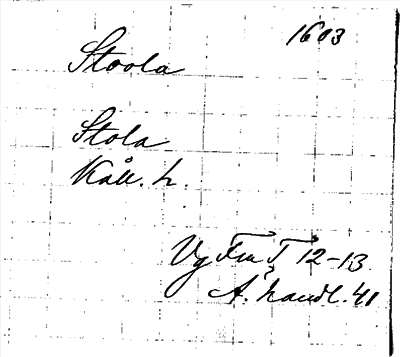 1603
Stoola
Stola
Kåll. h.
Vg Fm T 12-13
A. handl. 41